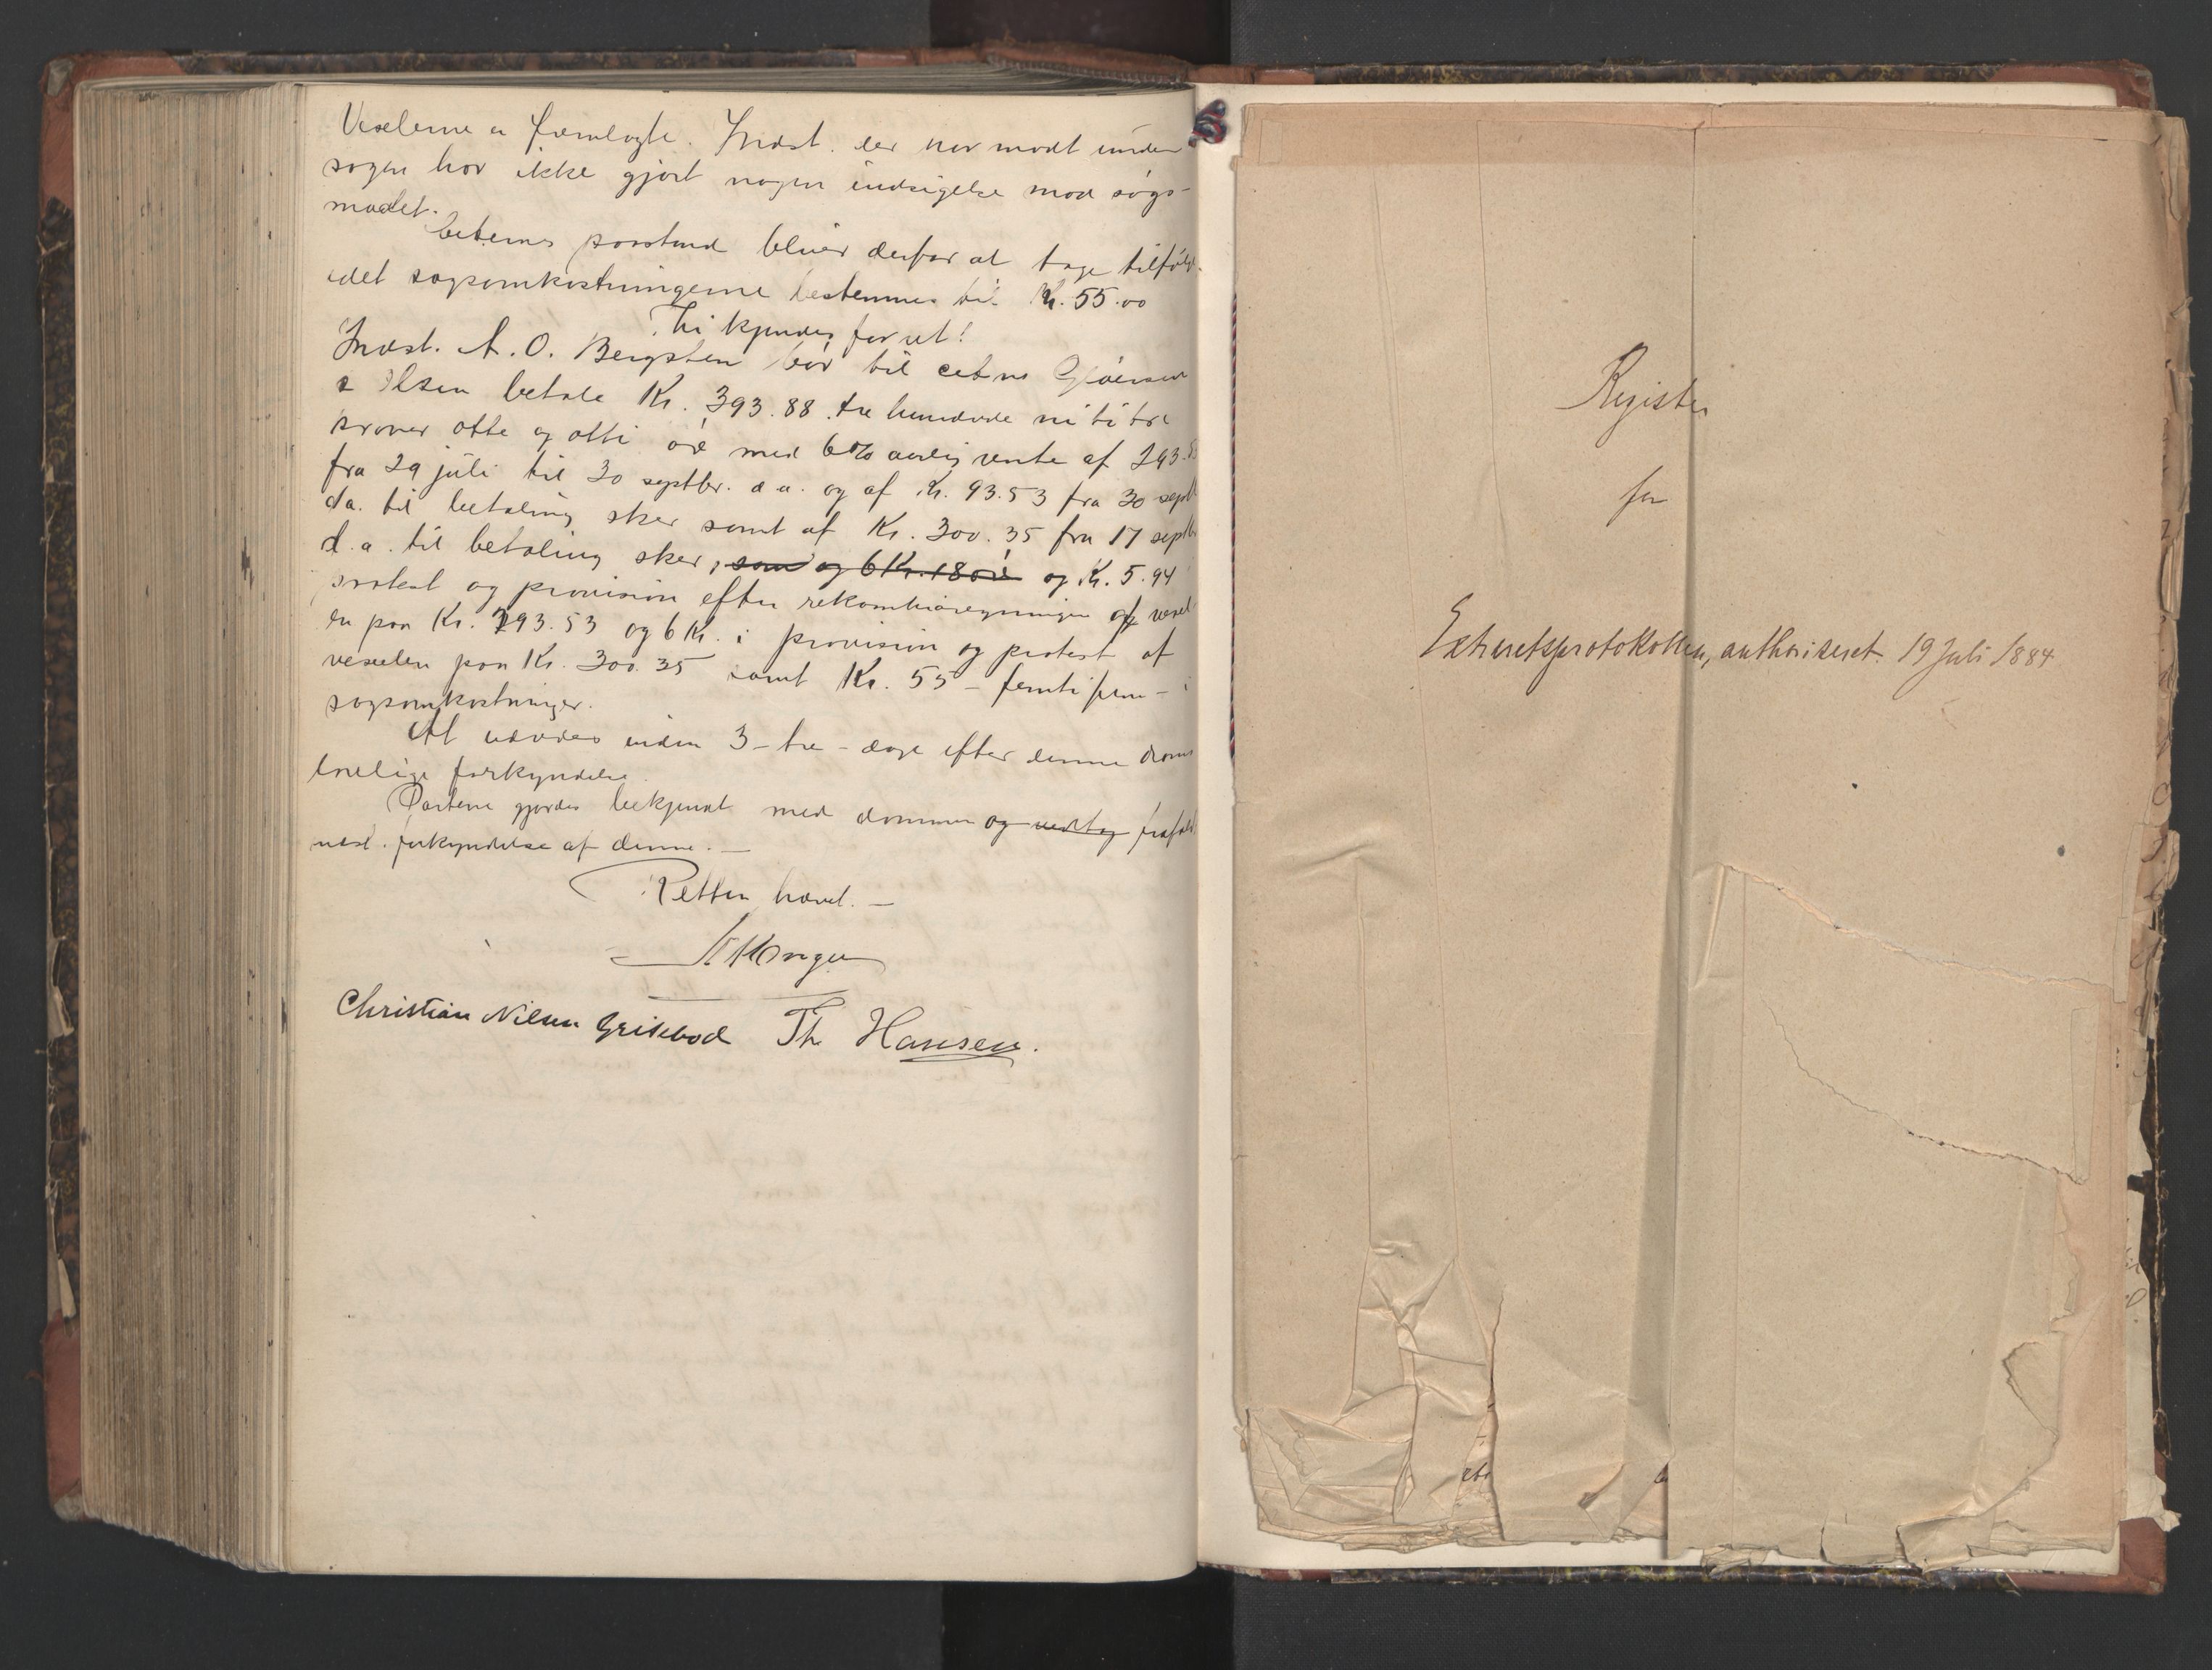 Vexlerne er fremlagte. Indst. der har mødt under
sagen har ikke gjort nogen indsigelse mod søgs-
maalet.
Citternes paastand bliver derfor at tage tilfølge
idet sagsomkostningerne bestemmes til Kr. 55.00
Thi kjendes for ret!
Indst. A. O. Bergsten bør til citrne
& Olsen betale Kr. 393.88 tre hundrede nititre
kroner otte og otti øre med 6% aarlig rente af 293.53
fra 29 juli til 30 septbr. d.a. og af Kr. 93.53 fra 30 septbr
d.a. til betaling sker samt af Kr. 300.35 fra 17 septbr
d.a. til betaling sker, som og 6 Kr. 18 øre og Kr. 5.94 i
protest og provision efter rekambioregningen af vexel
en paa Kr. 293.53 og 6 Kr. i provision og protest af
vexelen paa Kr. 300.35 samt Kr. 55 – femti fem – i
sagsomkostninger.
At udredes inden 3 – tre – dage efter denne doms
lovlige forkyndelse.
Parterne gjordes bekjendt med dommen og vedtog frafaldt
indst. forkyndelse af denne. —
Retten hævet. —
Christian Nilsen Grisebod Th Hansen.
Register
for
Extraretsprotokollen, authoriseret 19 Juli 1884